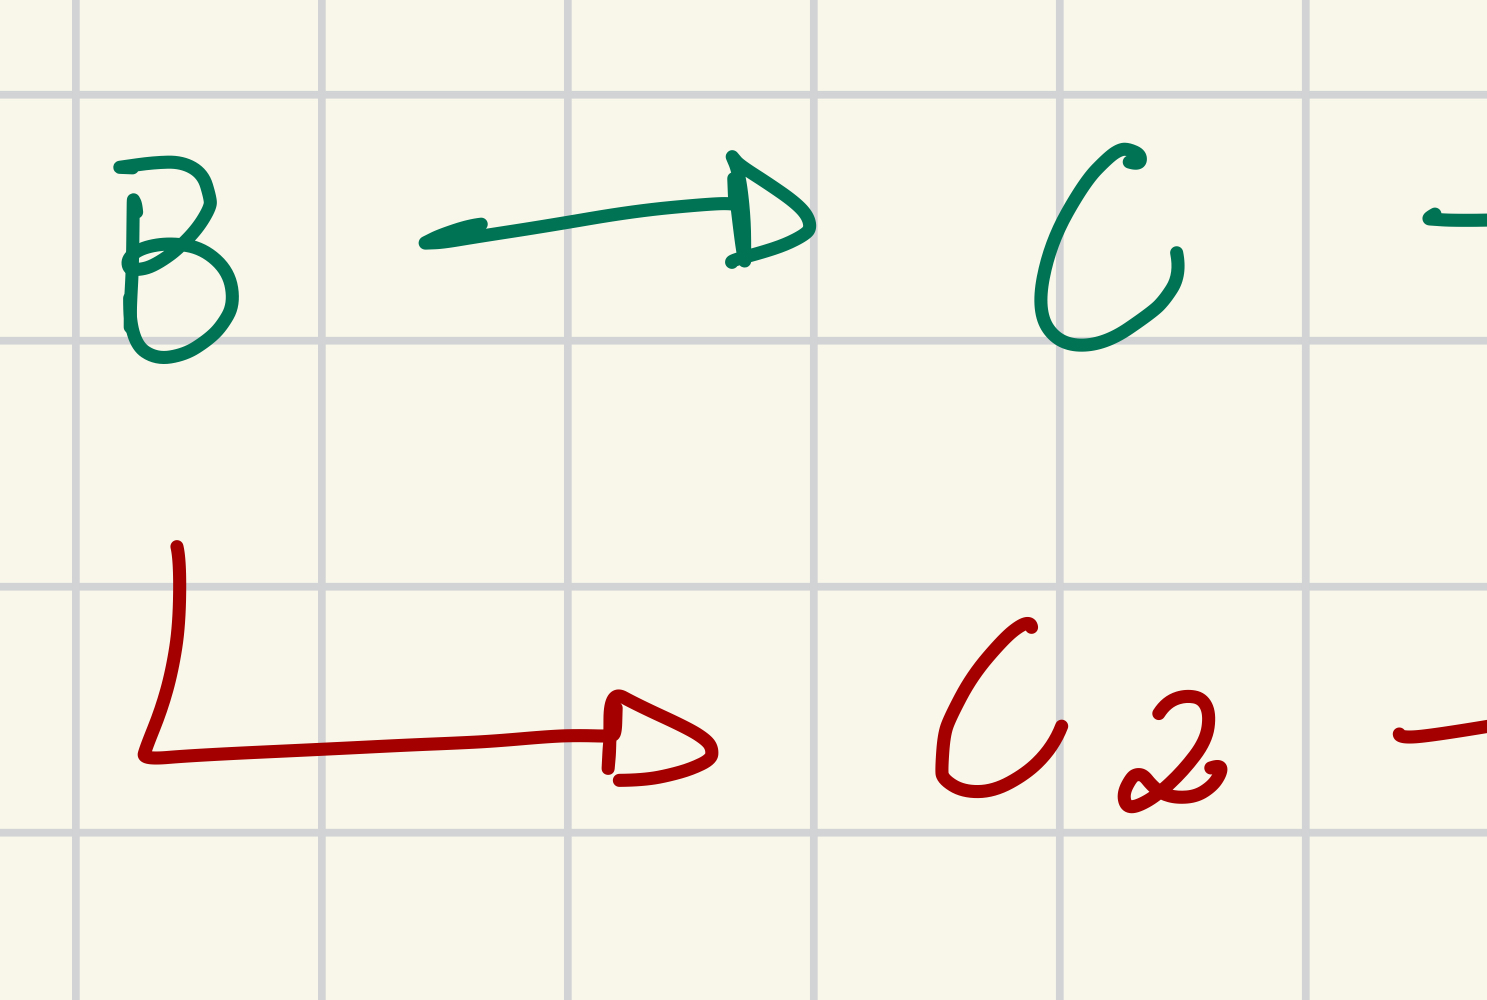 B → C -
↳ C2 -